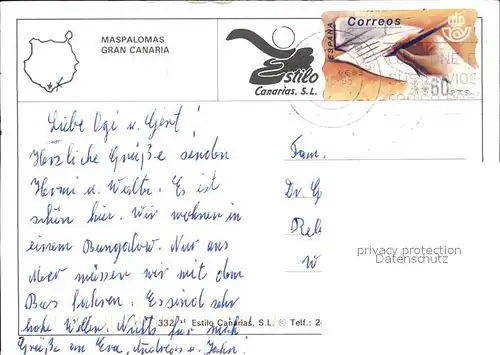 MASPALOMAS
GRAN CANARIA
Estilo
Canarias, S.L.
Correos
ESPAÑA
**60 PTS
Liebe Ogi u. Gert!
Herzliche Grüße senden
Hermi u. Walter. Es ist
schön hier. Wir wohnen in
einem Bungalow. Nur ans
Meer müssen wir mit dem
Bus fahren. Es sind sehr
hohe Wellen. Nichts für mich
Grüße an Eva, Andreas u.
Fam.
Dr. G
W
privacy protection
Datenschutz
332/ Estilo Canarias, S.L. © Telf.: 2